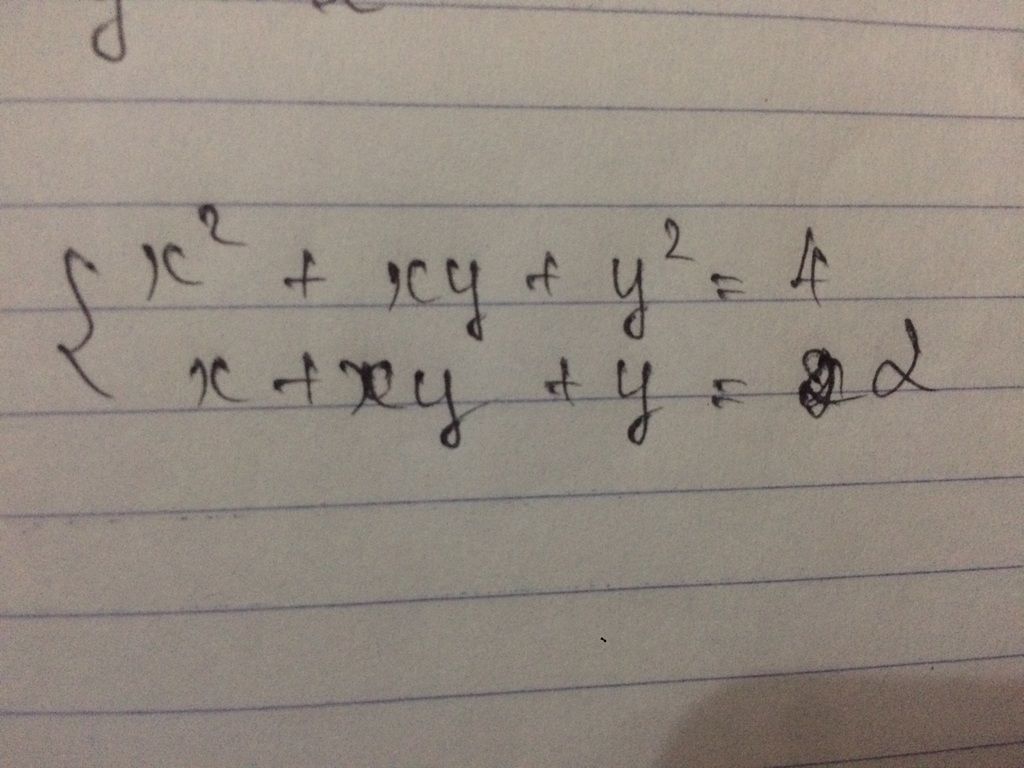 x² + xy + y² = 4
x + xy + y = 2